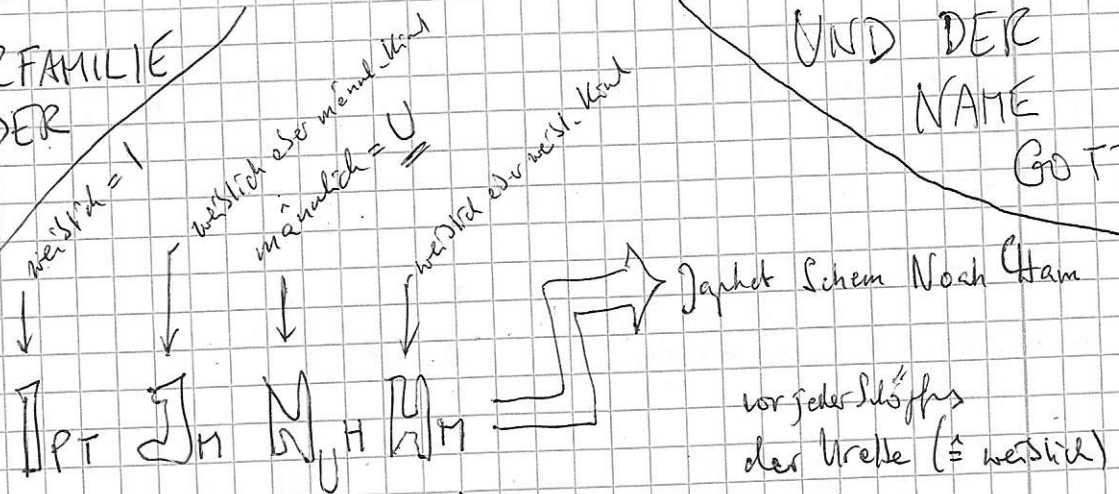 RFAMILIE
DER
UND DER
NAME
GOTT
weiblich = I
weiblich oder männl. Kind
männlich = U
weiblich oder weibl. Kind
Japhet Schem Noah Cham
IPT JM NUH HM
vor jeder
der (≙ weiblich)